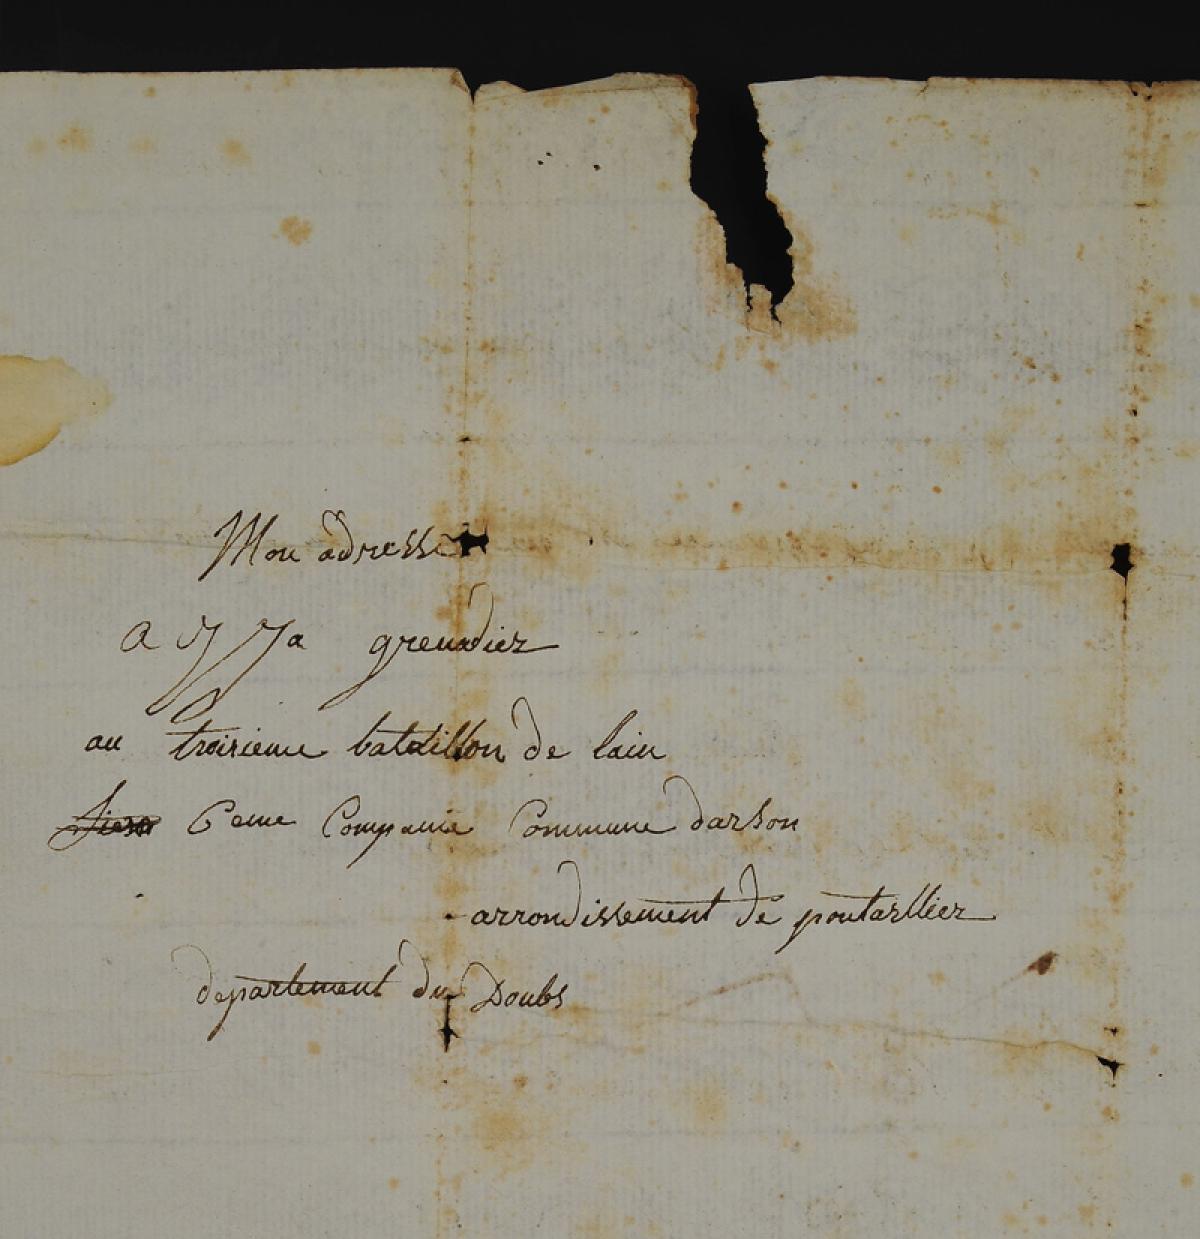 Mon adresse
a J J a grenadier
au troisieme bataillon de lain
6eme Compagnie Commune darson
arrondissement de pontarllier
departement du Doubs